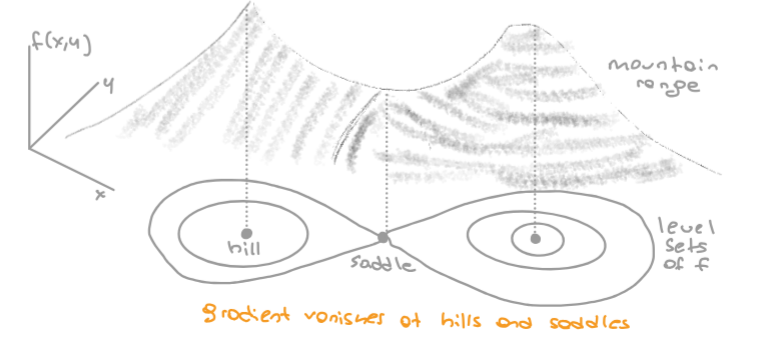 f(x,y)
y
mountain
range
x
hill
saddle
level
sets
of f
gradient vanishes at hills and saddles